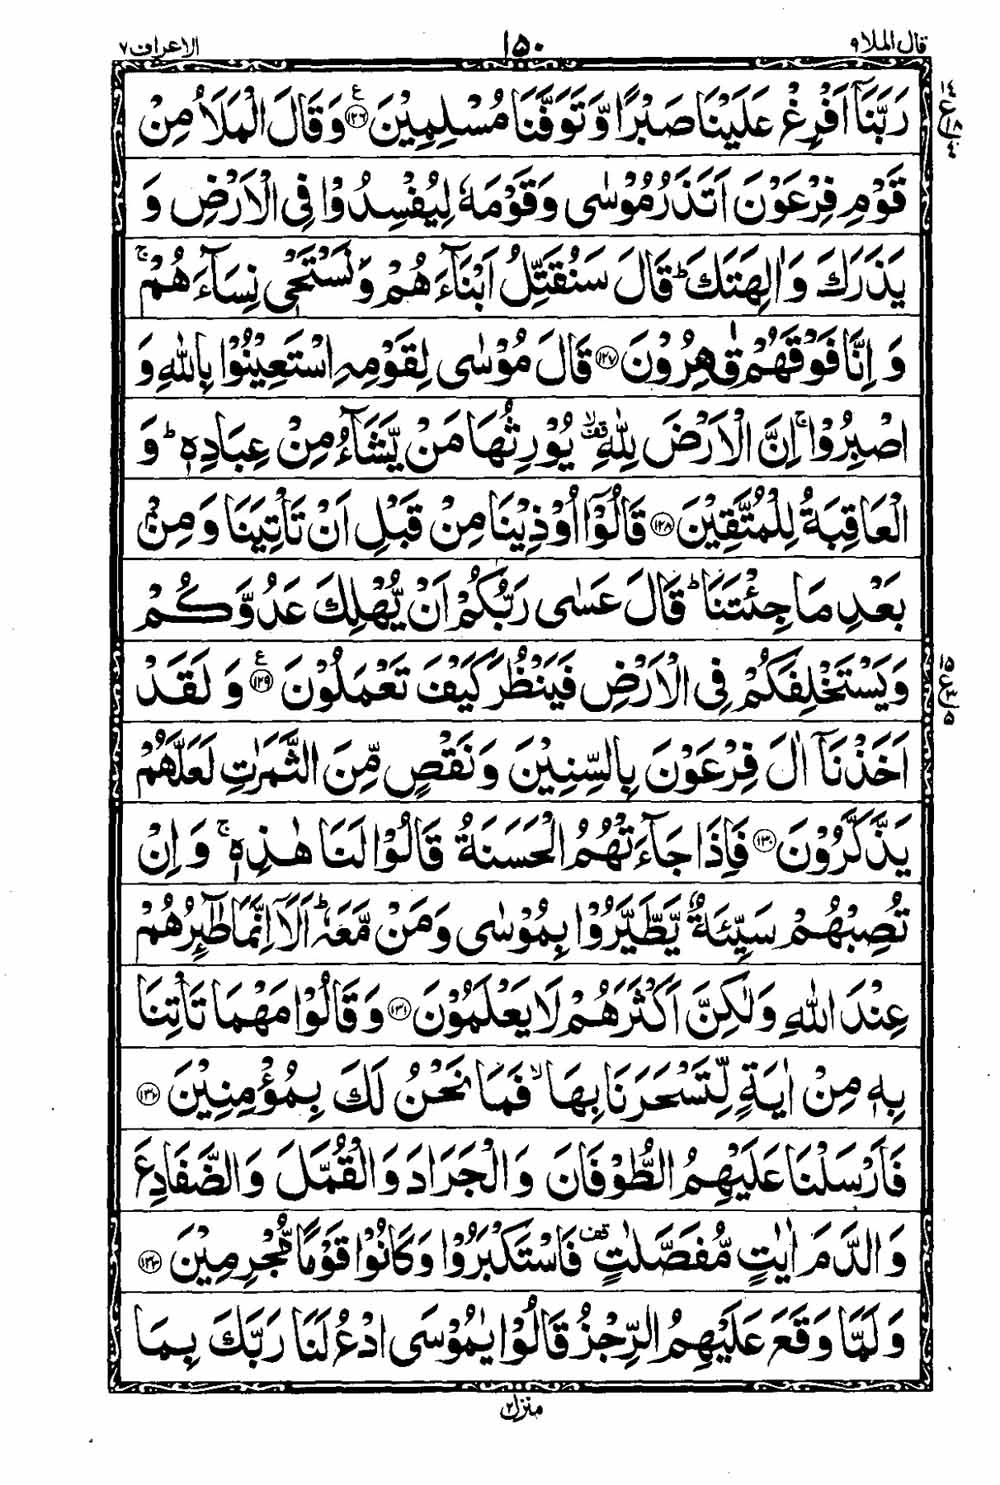 قال الملا ٩ ١٥٠ الاعراف ٧
رَبَّنَاۤ اَفْرِغْ عَلَيْنَا صَبْرًا وَّ تَوَفَّنَا مُسْلِمِيْنَ ﴿١٢٦﴾ ع وَ قَالَ الْمَلَاُ مِنْ
١٤ ع ١٨
قَوْمِ فِرْعَوْنَ اَتَذَرُ مُوْسٰى وَ قَوْمَهٗ لِيُفْسِدُوْا فِى الْاَرْضِ وَ
يَذَرَكَ وَ اٰلِهَتَكَ ؕ قَالَ سَنُقَتِّلُ اَبْنَآءَهُمْ وَ نَسْتَحْىٖ نِسَآءَهُمْ ۚ
وَ اِنَّا فَوْقَهُمْ قٰهِرُوْنَ ﴿١٢٧﴾ قَالَ مُوْسٰى لِقَوْمِهِ اسْتَعِيْنُوْا بِاللّٰهِ وَ
اصْبِرُوْا ۚ اِنَّ الْاَرْضَ لِلّٰهِ ۙ۫ يُوْرِثُهَا مَنْ يَّشَآءُ مِنْ عِبَادِهٖ ؕ وَ
الْعَاقِبَةُ لِلْمُتَّقِيْنَ ﴿١٢٨﴾ قَالُوْۤا اُوْذِيْنَا مِنْ قَبْلِ اَنْ تَاْتِيَنَا وَ مِنْۢ
بَعْدِ مَا جِئْتَنَا ؕ قَالَ عَسٰى رَبُّكُمْ اَنْ يُّهْلِكَ عَدُوَّكُمْ
وَ يَسْتَخْلِفَكُمْ فِى الْاَرْضِ فَيَنْظُرَ كَيْفَ تَعْمَلُوْنَ ﴿١٢٩﴾ ع وَ لَقَدْ
١٥ ع ٣ ٥
اَخَذْنَاۤ اٰلَ فِرْعَوْنَ بِالسِّنِيْنَ وَ نَقْصٍ مِّنَ الثَّمَرٰتِ لَعَلَّهُمْ
يَذَّكَّرُوْنَ ﴿١٣٠﴾ فَاِذَا جَآءَتْهُمُ الْحَسَنَةُ قَالُوْا لَنَا هٰذِهٖ ۚ وَ اِنْ
تُصِبْهُمْ سَيِّئَةٌ يَّطَّيَّرُوْا بِمُوْسٰى وَ مَنْ مَّعَهٗ ؕ اَلَاۤ اِنَّمَا طٰٓئِرُهُمْ
عِنْدَ اللّٰهِ وَ لٰكِنَّ اَكْثَرَهُمْ لَا يَعْلَمُوْنَ ﴿١٣١﴾ وَ قَالُوْا مَهْمَا تَاْتِنَا
بِهٖ مِنْ اٰيَةٍ لِّتَسْحَرَنَا بِهَا ۙ فَمَا نَحْنُ لَكَ بِمُؤْمِنِيْنَ ﴿١٣٢﴾
فَاَرْسَلْنَا عَلَيْهِمُ الطُّوْفَانَ وَ الْجَرَادَ وَ الْقُمَّلَ وَ الضَّفَادِعَ
وَ الدَّمَ اٰيٰتٍ مُّفَصَّلٰتٍ ۫ فَاسْتَكْبَرُوْا وَ كَانُوْا قَوْمًا مُّجْرِمِيْنَ ﴿١٣٣﴾
وَ لَمَّا وَقَعَ عَلَيْهِمُ الرِّجْزُ قَالُوْا يٰمُوْسَى ادْعُ لَنَا رَبَّكَ بِمَا
منزل ٢